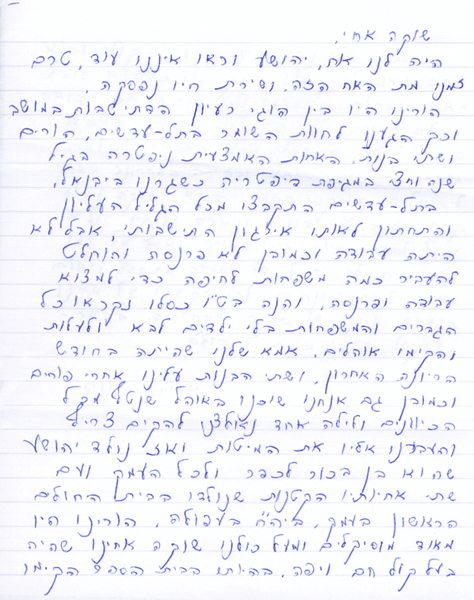 שוקה אחי,
היה לנו אח, יהושע וראו איננו עוד, טרם
זמנו מת האח הזה, ושירת חייו נפסקה.
הורינו היו בין הוגי רעיון הדתישבות במושב
וכך הגענו לחוות השומר בתל-עדשים, הורים
ושתי בנות. האחות האמצעית ניפטרה בגיל
שנה וחצי במגיפת דיפטריה כשגרנו ביבנאל.
בתל-עדשים התקבצו מכל הגליל העליון
והתחתון לאותו אירגון התישבותי, אבל לא
היתה עבודה וכמובן לא פרנסה והוחלט
להעביר כמה משפחות לחיפה כדי למצוא
עבודה ופרנסה. והנה בט"ו כסלו נקראו כל
הגברים והמשפחות בלי ילדים לבא ולעלות
והקימו אוהלים. אמא שלנו שהייתה בחודש
הריונה האחרון, ושתי הבנות עלינו אחרי פורים
וכמובן גם אנחנו שוכנו באוהל שנטף מכל
הכיוונים ולילה אחד נאלצנו להקים צריף
והעברנו אליו את המיטות ואז נולד יהושע
שהוא בן בכור לכפר ולכל העמק ועם
שתי אחיותיו הקטנות שנולדו בבית החולים
הראשון בעמק, ביה"ח בעפולה. הורינו היו
מאוד מוסיקלים ומעל כולנו שוקה אחינו שהיה
בעל קול חם ויפה. בהיותו בבית הספר הקימו